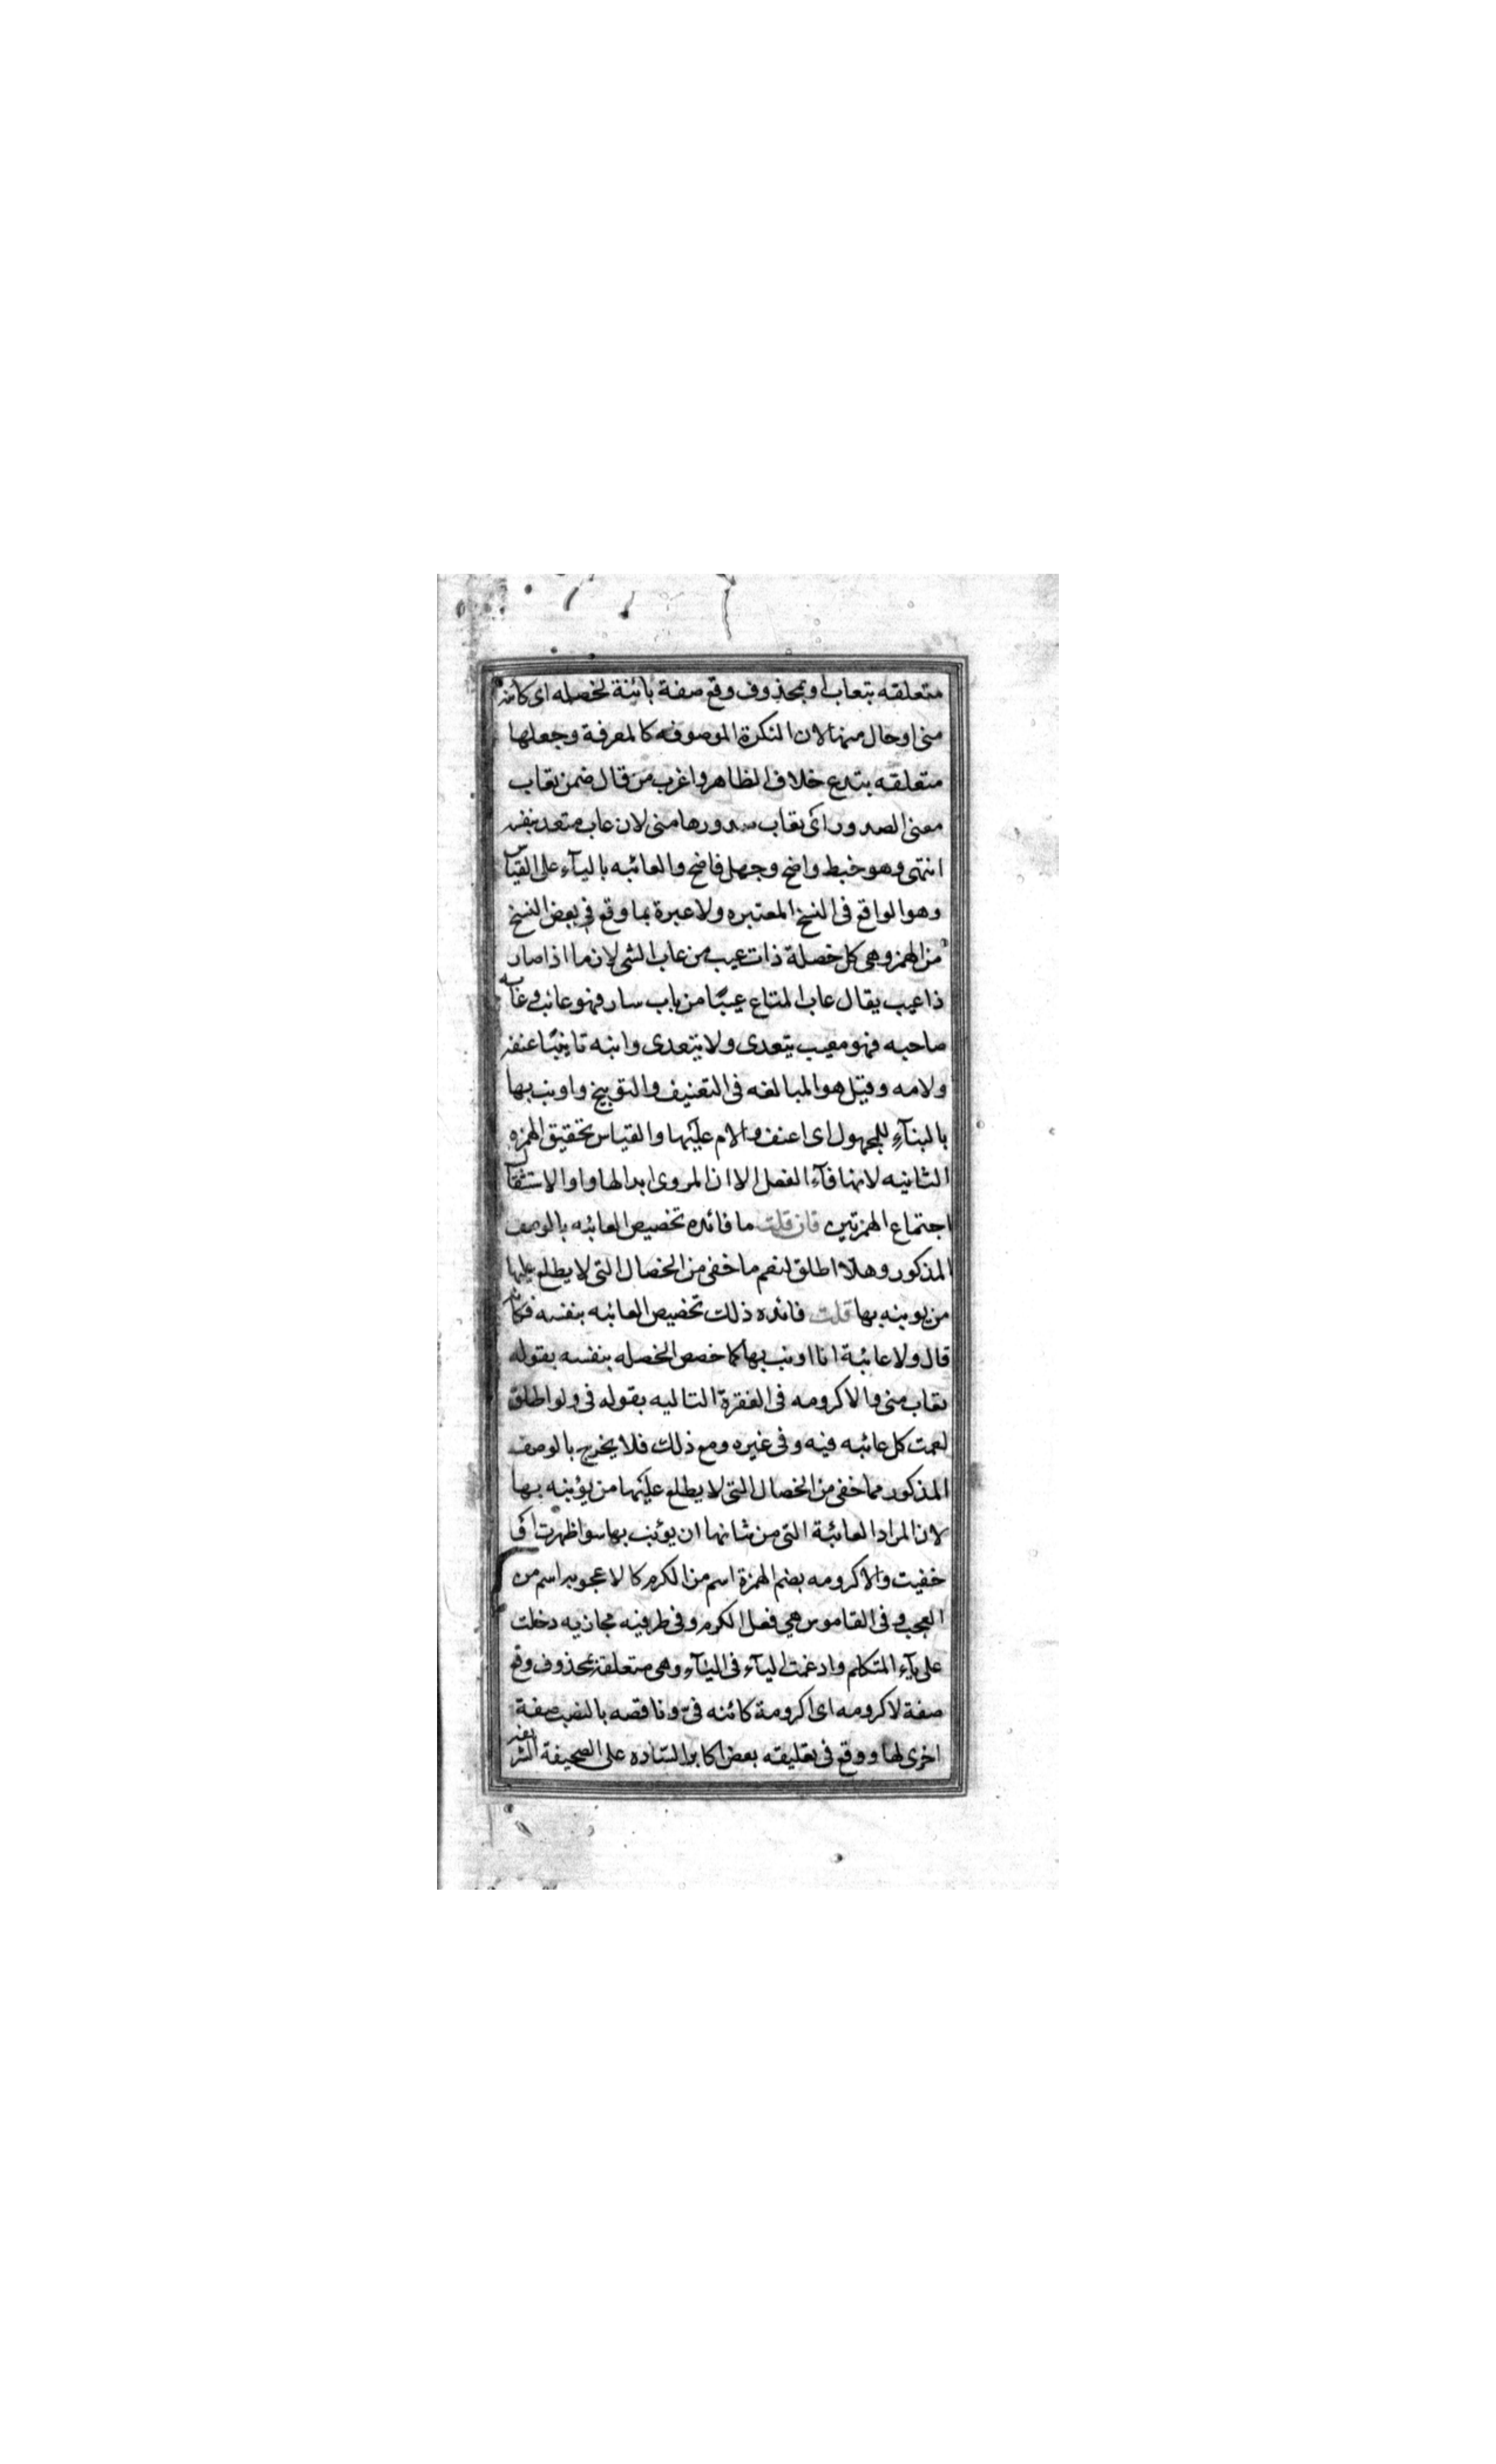 متعلقه بتعاب او بمحذوف وقع صفة بائنة لخصله اى كائنه
منى او حال منها لان النكرة الموصوفه كالمعرفة وجعلها
متعلقه بتدع خلاف الظاهر واغرب من قال ضمن تعاب
معنى الصدور اى تعاب صدورها منى لان عاب متعد بنفسه
انتهى وهو خبط واضح وجهل فاضح والعائبه باليآء على القياس
وهو الواقع فى النسخ المعتبره ولا عبرة بما وقع فى بعض النسخ
من الهمز وهى كل خصلة ذات عيب من عاب الشى لازما اذا صار
ذا عيب يقال عاب المتاع عيبًا من باب سار فهو عائب وعابه
صاحبه فهو معيب يتعدى ولا يتعدى وانبه تانيبًا عنفه
ولامه وقيل هو المبالغه فى التعنيف والتوبيخ واونب بها
بالبنآء للمجهول اى اعنف والام عليها والقياس تحقيق الهمزه
الثانيه لانها فآء الفعل الا ان المروى ابدالها واوا لاستثقال
اجتماع الهمزتين فان قلت ما فائده تخصيص العائبه بالوصف
المذكور وهلّا اطلق لتعم ما خفى من الخصال التى لا يطلع عليها
من يونبه بها قلت فائده ذلك تخصيص العائبه بنفسه فكانه
قال ولا عائبة انا اونب بها كما خصص الخصله بنفسه بقوله
تعاب منى والاكرومه فى الفقرة التاليه بقوله فى ولو اطلق
لعمت كل عائبه فيه وفى غيره ومع ذلك فلا يخرج بالوصف
المذكور مما خفى من الخصال التى لا يطلع عليها من يؤنبه بها
لان المراد العائبة التى من شانها ان يؤنب بها سوا ظهرت او
خفيت والاكرومه بضم الهمزة اسم من الكرم كالاعجوبه اسم من
العجب وفى القاموس هى فعل الكرم وفى ظرفيه مجازيه دخلت
على يآء المتكلم وادغمت اليآء فى اليآء وهى متعلقة بمحذوف وقع
صفة لاكرومه اى اكرومة كائنه فىّ وناقصه بالنصب صفة
اخرى لها ووقع فى تعليقه بعض اكابر الساده على الصحيفة الشريفه